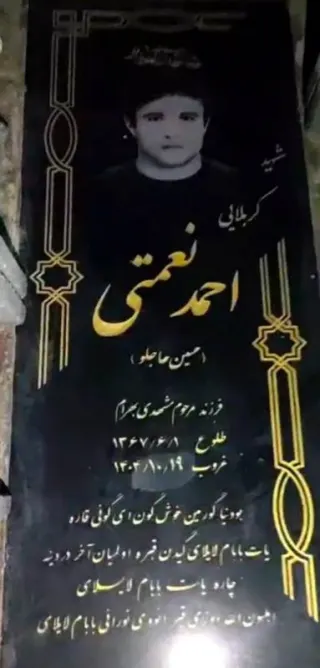 شهید
کربلایی
احمد نعمتی
(حسین حاجلو)
فرزند مرحوم مشهدی بهرام
طلوع ۱۳۶۷/۶/۸
غروب ۱۴۰۴/۱۰/۱۹
بودنیا گورمین خوش گون ای گونی قاره
یات بابام لایلای گیدن قبره اولمیان آخر دردینه
چاره یات بابام لایلای
ایلسون الله دوزی قبر ائوه‌ی نورانی بابام لایلای